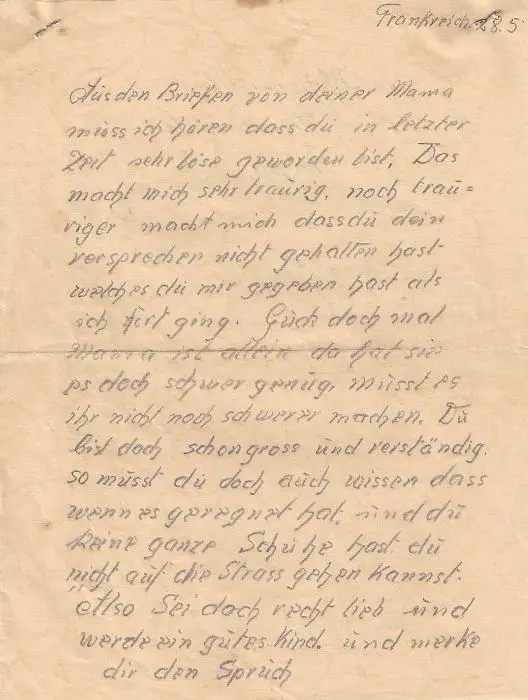 Frankreich. 28.5
Aus den Briefen von deiner Mama
muss ich hören dass du in letzter
Zeit sehr böse geworden bist, Das
macht mich sehr traurig, noch trau=
riger macht mich dass du dein
versprechen nicht gehalten hast
welches du mir gegeben hast als
ich fort ging. Guck doch mal
Mama ist allein da hat sie
es doch schwer genug, musst es
ihr nicht noch schwerer machen. Du
bist doch schon gross und verständig.
so musst du doch auch wissen dass
wenn es geregnet hat. und du
keine ganze Schuhe hast du
nicht auf die Strass gehen kannst.
Also Sei doch recht lieb und
werde ein gutes Kind. und merke
dir den Spruch